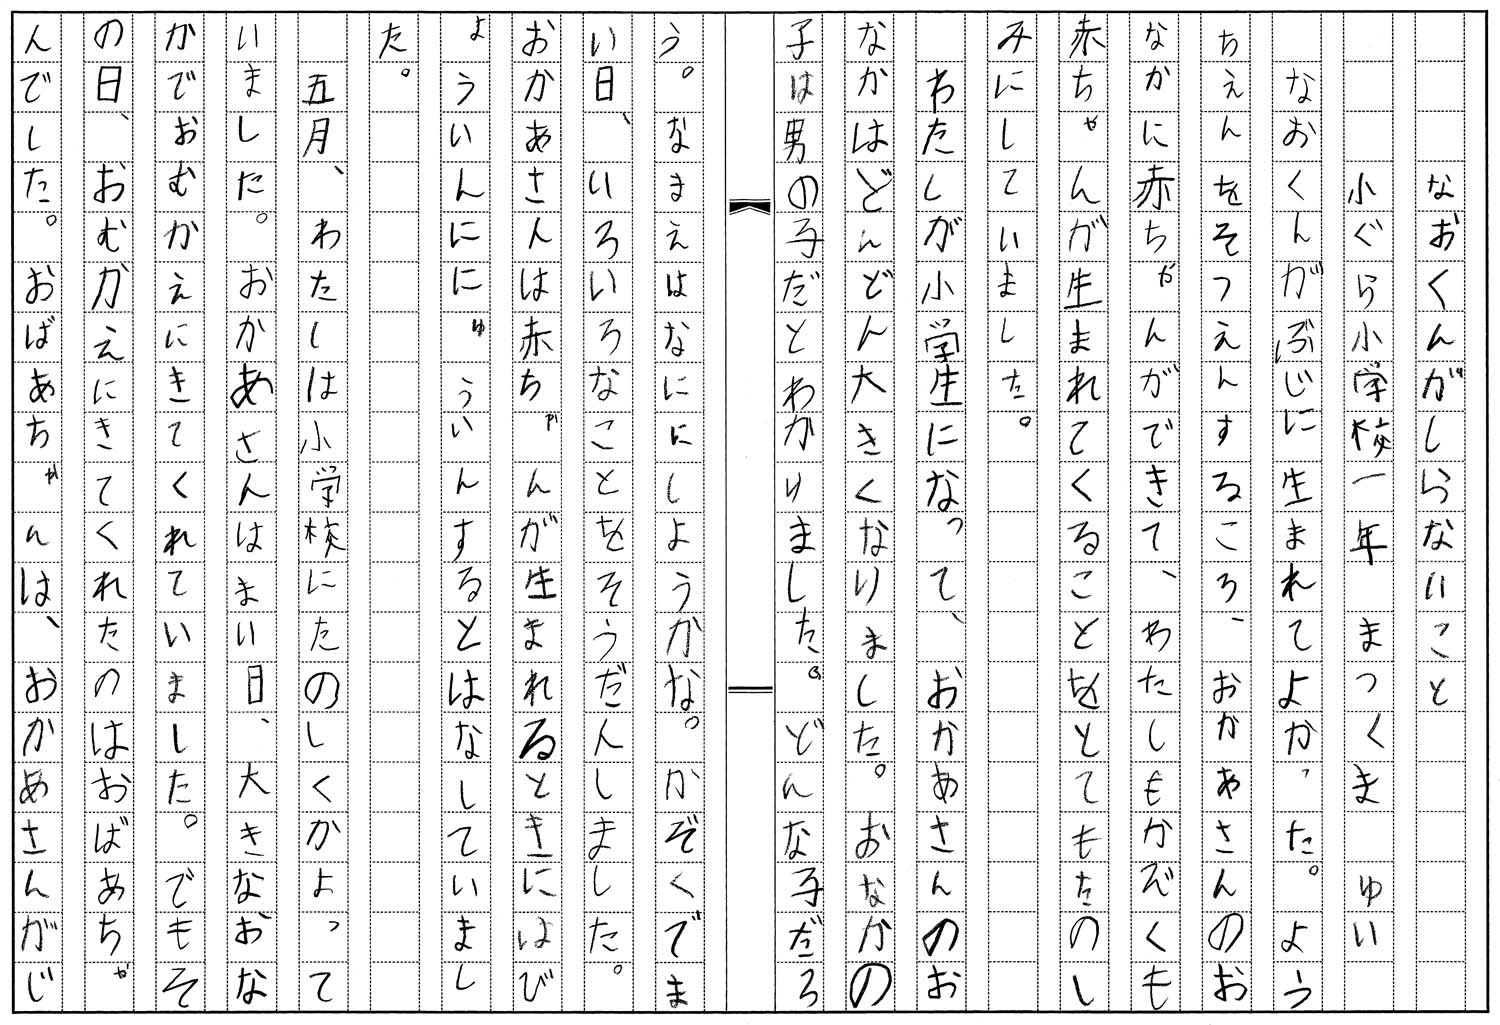 なおくんがしらないこと
小ぐら小学校一年　まつくま　ゆい
なおくんがぶじに生まれてよかった。よう
ちえんをそつえんするころ、おかあさんのお
なかに赤ちゃんができて、わたしもかぞくも
赤ちゃんが生まれてくることをとてもたのし
みにしていました。
わたしが小学生になって、おかあさんのお
なかはどんどん大きくなりました。おなかの
子は男の子だとわかりました。どんな子だろ
う。なまえはなににしようかな。かぞくでま
い日、いろいろなことをそうだんしました。
おかあさんは赤ちゃんが生まれるときにはび
ょういんににゅういんするとはなしていまし
た。
五月、わたしは小学校にたのしくかよって
いました。おかあさんはまい日、大きなおな
かでおむかえにきてくれていました。でもそ
の日、おむかえにきてくれたのはおばあちゃ
んでした。おばあちゃんは、おかあさんがじ